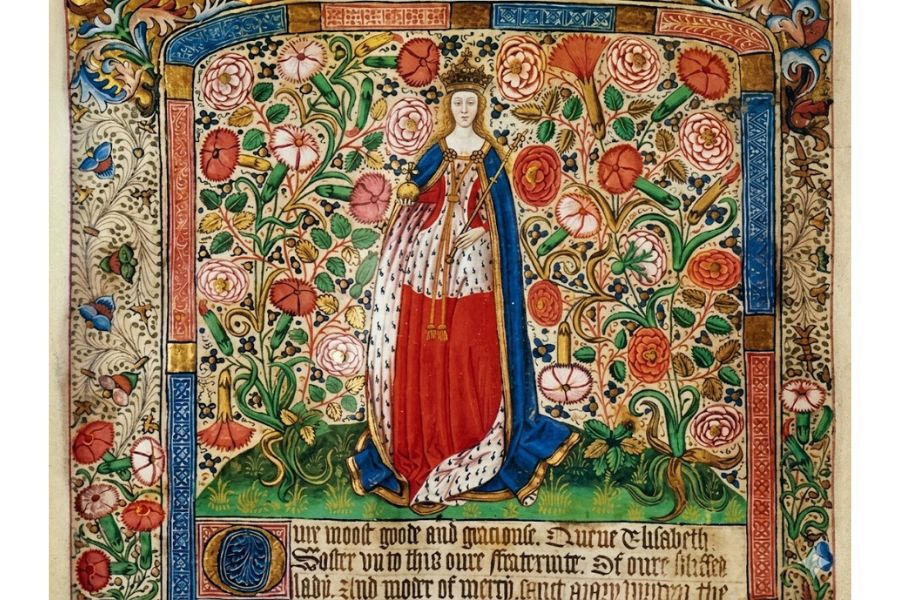 Oure moost goode and graciouse. Quene Elisabeth.
Soster vn to this oure ffraternite: Of oure blissed
lady. And moder of mercy. sanct mary virgyn the